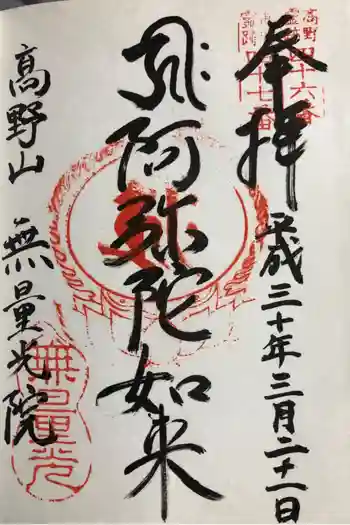 奉拝
平成三十年三月二十一日
阿弥陀如来
高野山 無量光院
高野
四十六番
四十七番
無量光